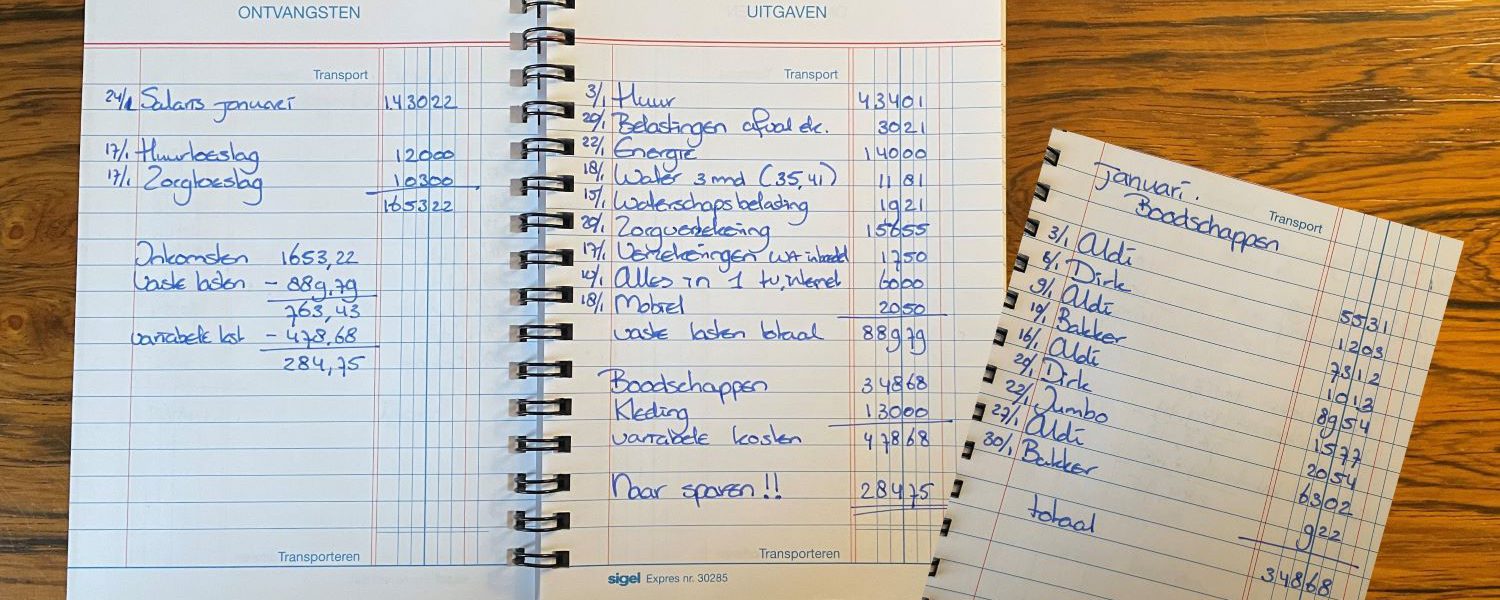 ONTVANGSTEN
Transport
24/1 Salaris januari 143022
17/1 Huurtoeslag 12000
17/1 Zorgtoeslag 10300
165322
Inkomsten 1653,22
Vaste lasten - 889,79
763,43
variabele last - 478,68
284,75
Transporteren
UITGAVEN
Transport
3/1 Huur 43401
20/1 Belastingen afval ek. 3021
22/1 Energie 14000
18/1 Water 3 mnd (35,41) 1181
15/1 Waterschapsbelasting 1921
20/1 Zorgverzekering 15655
17/1 Verzekeringen WA inboedel 1750
14/1 Alles in 1 tv, internet 6000
18/1 Mobiel 2050
vaste lasten totaal 88979
Boodschappen 34868
Kleding 13000
variabele kosten 47868
Naar sparen!! 28475
Transporteren
sigel Expres nr. 30285
januari.
Boodschappen
Transport
3/1 Aldi 5531
6/1 Dirk 1203
9/1 Aldi 7312
10/1 Bakker 1013
16/1 Aldi 8954
20/1 Dirk 1577
22/1 Jumbo 2054
27/1 Aldi 6302
30/1 Bakker 922
totaal 34868